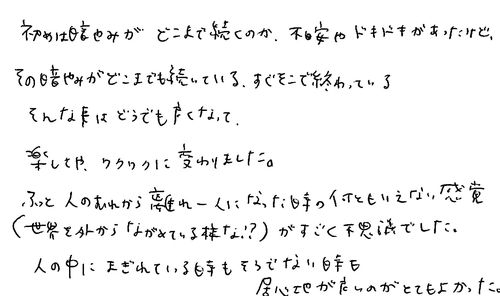 初めは暗やみが どこまで続くのか、不安や ドキドキがあったけど、
その暗やみがどこまでも続いている、すぐそこで終わっている
そんな事はどうでも良くなって、
楽しさや、ワクワクに 変わりました。
ふっと 人のむれから離れ一人になった時の何ともいえない感覚
(世界を外からながめている様な!?)がすごく不思議でした。
人の中にまぎれている時もそうでない時も
居心地が良いのがとてもよかった。